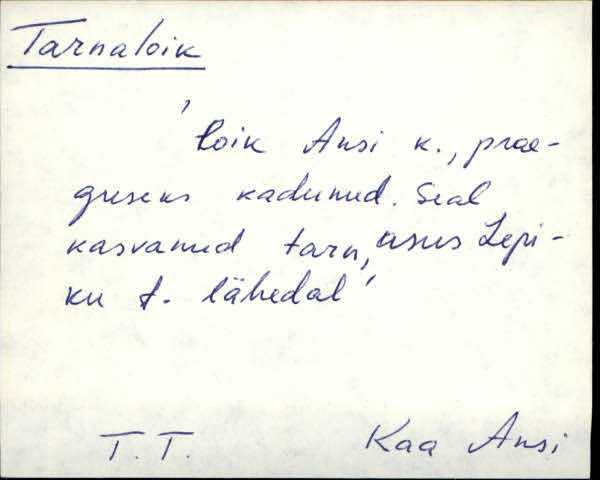 Tarnaloik
'loik Ansi k., prae-
guseks kadunud. Seal
kasvanud tarn, asus Lepi-
ku t. lähedal'
T. T. Kaa Ansi